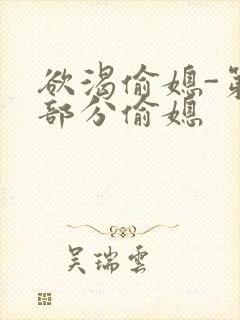 欲渴偷媳-第
部分偷媳
吴瑞雲